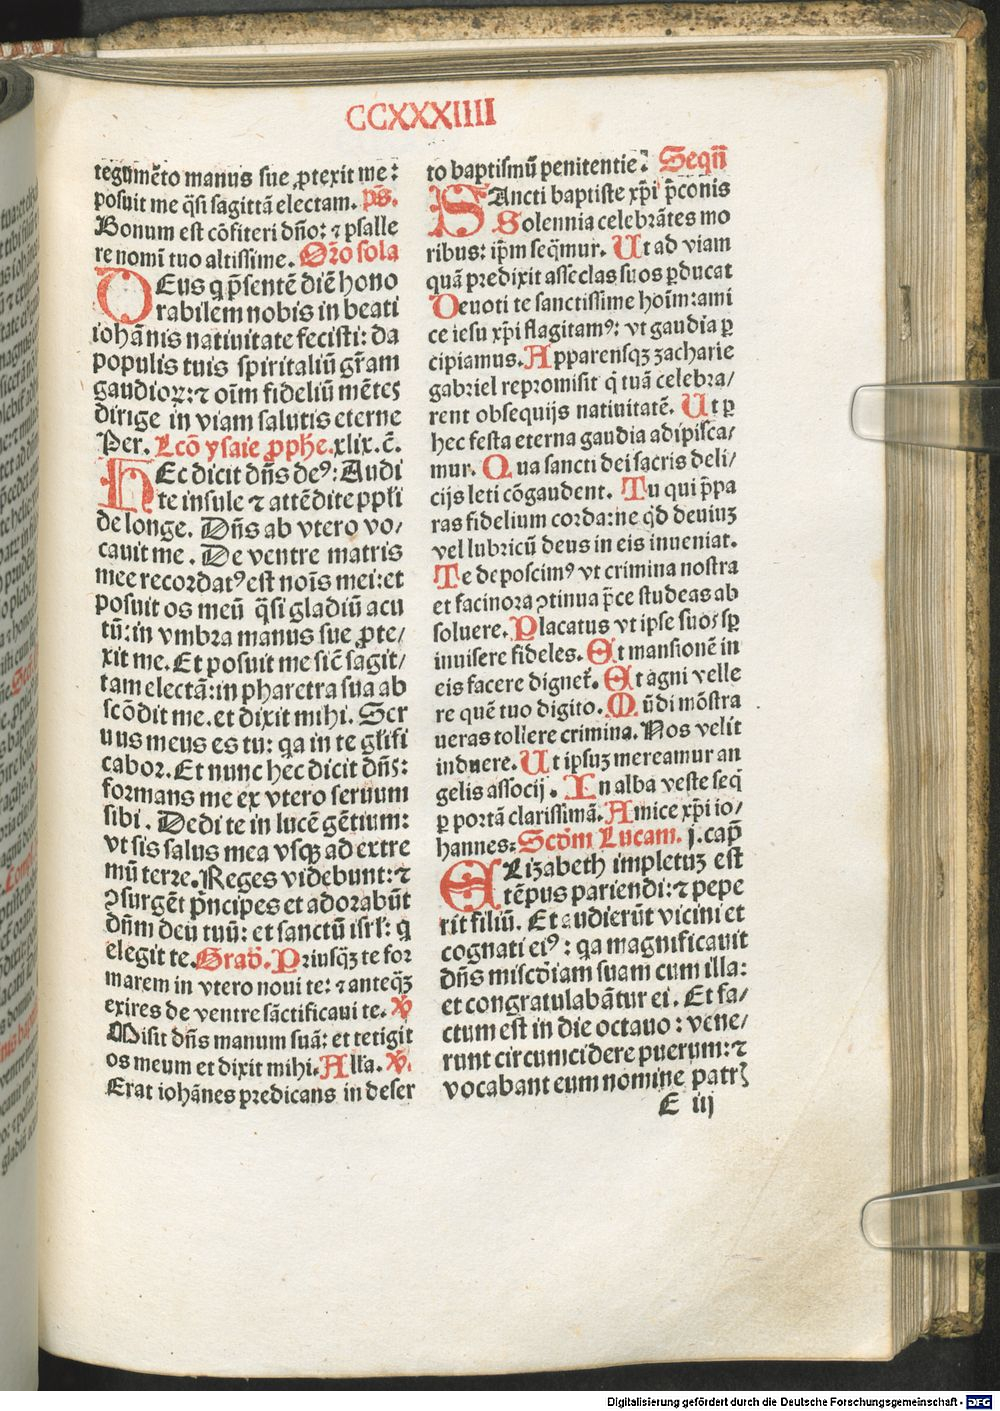 CCXXXIIII
tegumēto manus sue ꝓtexit me:
posuit me q̄si sagittā electam. ps̄.
Bonum est cōfiteri dn̄o: ⁊ psalle
re nomī tuo altissime. Or̄o sola
DEus q̄ p̄sentē diē hono
rabilem nobis in beati
iohānis natiuitate fecisti: da
populis tuis spiritaliū gr̄am
gaudioꝝ: ⁊ oīm fideliū mētes
dirige in viam salutis eterne
Per. Lcō ysaie ꝓph̄e. xlix. c̄.
HEc dicit dn̄s deꝰ: Audi
te insule ⁊ attēdite ppl̄i
de longe. Dn̄s ab vtero vo/
cauit me. De ventre matris
mee recordatꝰ est noīs mei: et
posuit os meū q̄si gladiū acu
tū: in vmbra manus sue ꝓte/
xit me. Et posuit me sic̄ sagit/
tam electā: in pharetra sua ab
scōdit me. et dixit mihi. Ser
uus meus es tu: q̄a in te gl̄ifi
cabor. Et nunc hec dicit dn̄s:
formans me ex vtero seruum
sibi. Dedi te in lucē gētium:
vt sis salus mea vsqꝫ ad extre
mū terre. Reges videbunt: ⁊
ꝯsurgēt p̄ncipes et adorabūt
dn̄m deū tuū: et sanctū isrl̄: q̄
elegit te. Grad̄. Priusqꝫ te for
marem in vtero noui te: ⁊ anteqꝫ
exires de ventre sāctificaui te. ℣
Misit dn̄s manum suā: et tetigit
os meum et dixit mihi. Alla. ℣.
Erat iohānes predicans in deser
to baptismū penitentie. Seqn̄
SAncti baptiste xp̄i p̄conis
Solennia celebrātes mo
ribus: ip̄m seq̄mur. Ut ad viam
quā predixit asseclas suos ꝑducat
Deuoti te sanctissime hoīm: ami
ce iesu xp̄i flagitamꝰ: vt gaudia ꝑ
cipiamus. Apparensqꝫ zacharie
gabriel repromisit q̄ tuā celebra/
rent obsequijs natiuitatē. Ut ꝑ
hec festa eterna gaudia adipisca/
mur. Qua sancti dei sacris deli/
cijs leti cōgaudent. Tu qui p̄pa
ras fidelium corda: ne qd̄ deuiuꝫ
vel lubricū deus in eis inueniat.
Te deposcimꝰ vt crimina nostra
et facinora ꝯtinua p̄ce studeas ab
soluere. Placatus vt ipse suos sꝑ
inuisere fideles. Et mansionē in
eis facere dignet̄. Et agni velle
re quē tuo digito. Mūdi mōstra
ueras tollere crimina. Nos velit
induere. Ut ipsuꝫ mereamur an
gelis associj. In alba veste seq̄
ꝑ portā clarissimā. Amice xp̄i io/
hannes. Scd̄m Lucam. j. cap̄
ELizabeth impletuꝫ est
tēpus pariendi: ⁊ pepe
rit filiū. Et audierūt vicini et
cognati eiꝰ: q̄a magnificauit
dn̄s misc̄diam suam cum illa:
et congratulabātur ei. Et fa/
ctum est in die octauo: vene/
runt circumcidere puerum: ⁊
vocabant eum nomine patrꝭ
E iij
Digitalisierung gefördert durch die Deutsche Forschungsgemeinschaft - DFG